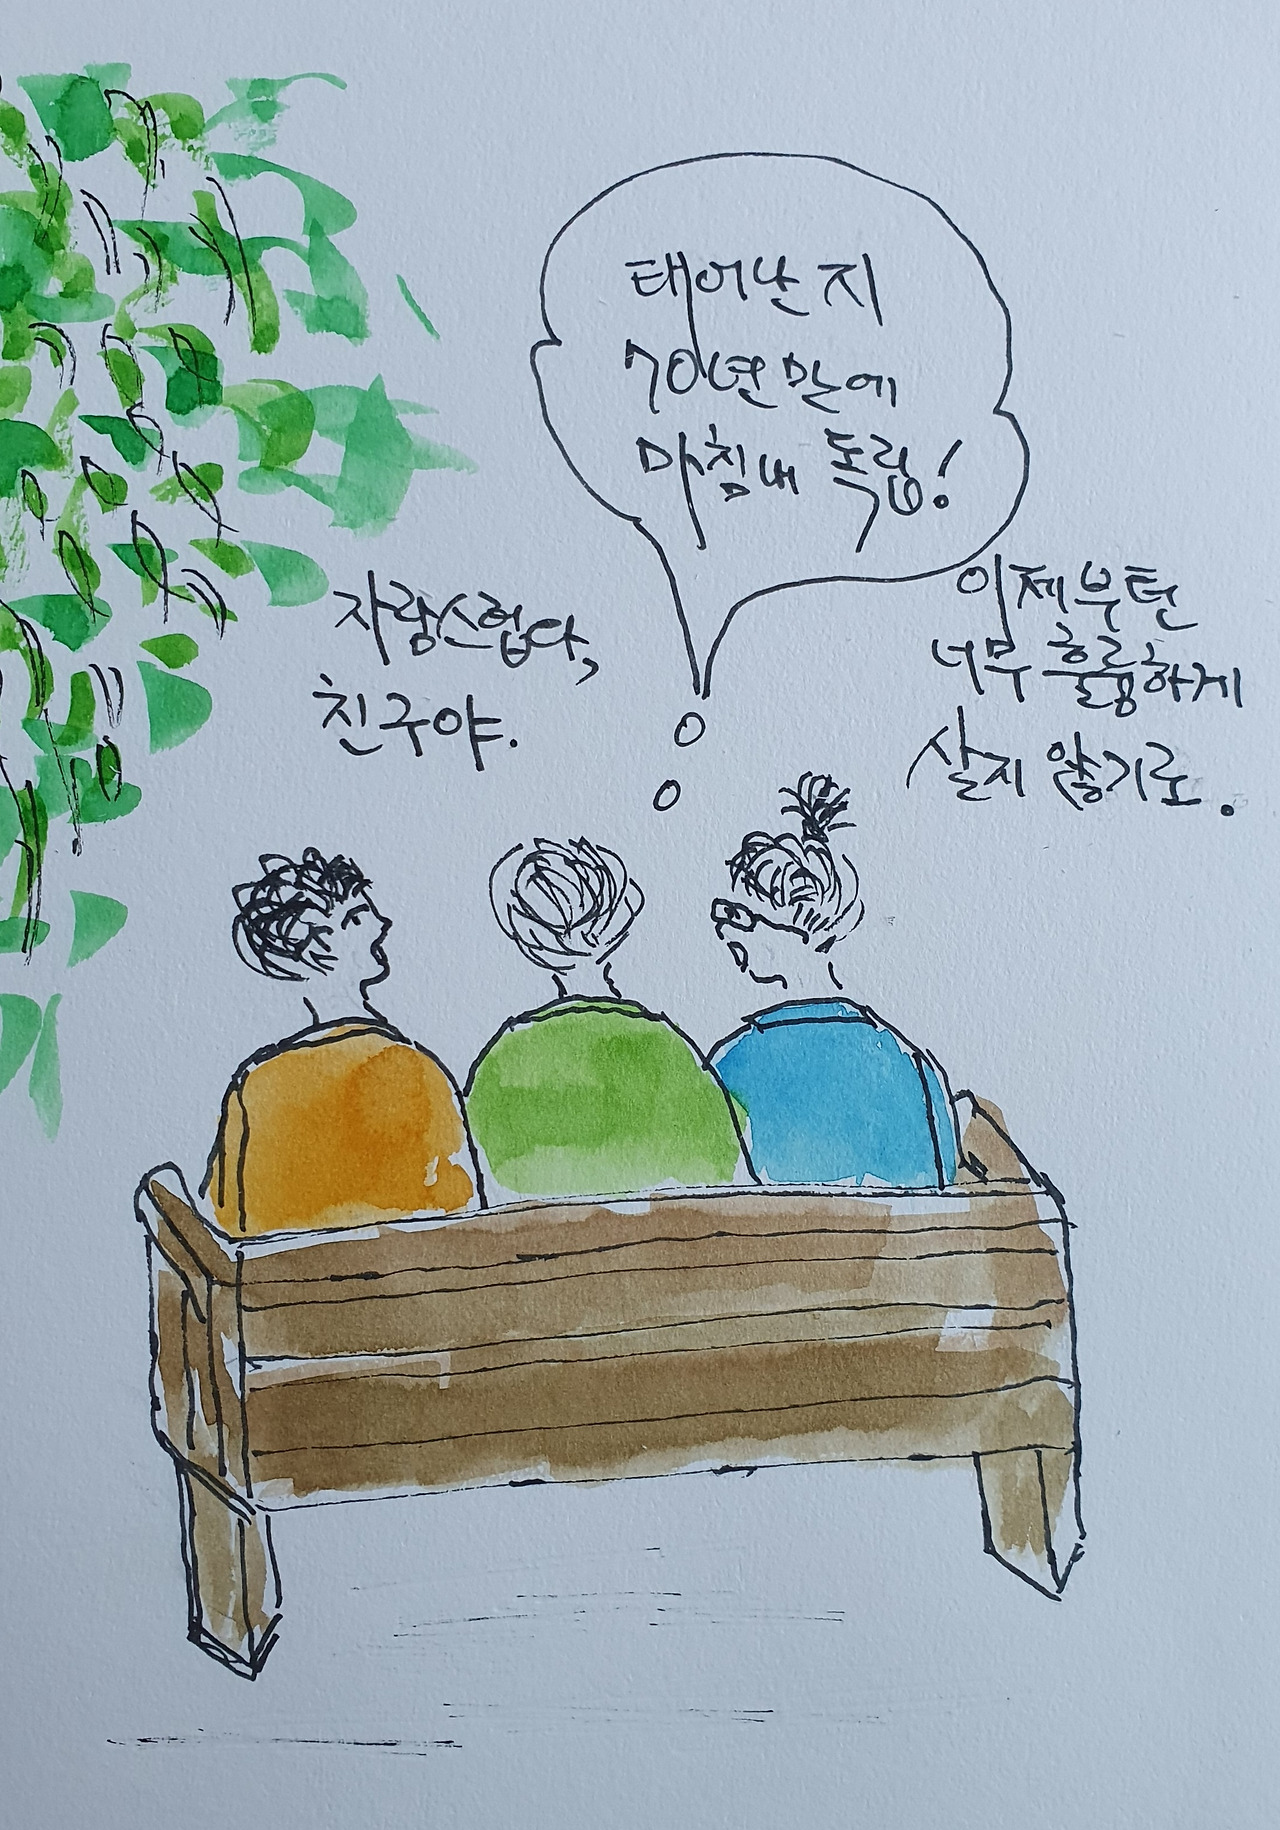 태어난 지
70년 만에
마침내 독립!
자랑스럽다,
친구야.
이제부턴
너무 훌륭하게
살지 않기로.